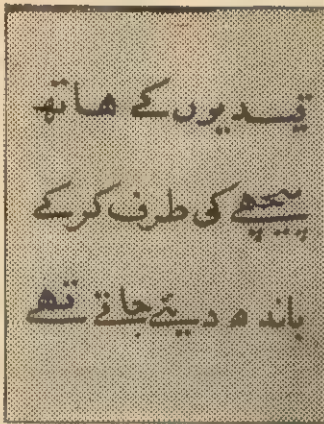 قیدیوں کے ھاتھ
پیچھے کی طرف کرکے
باندھ دیئے جاتے تھے